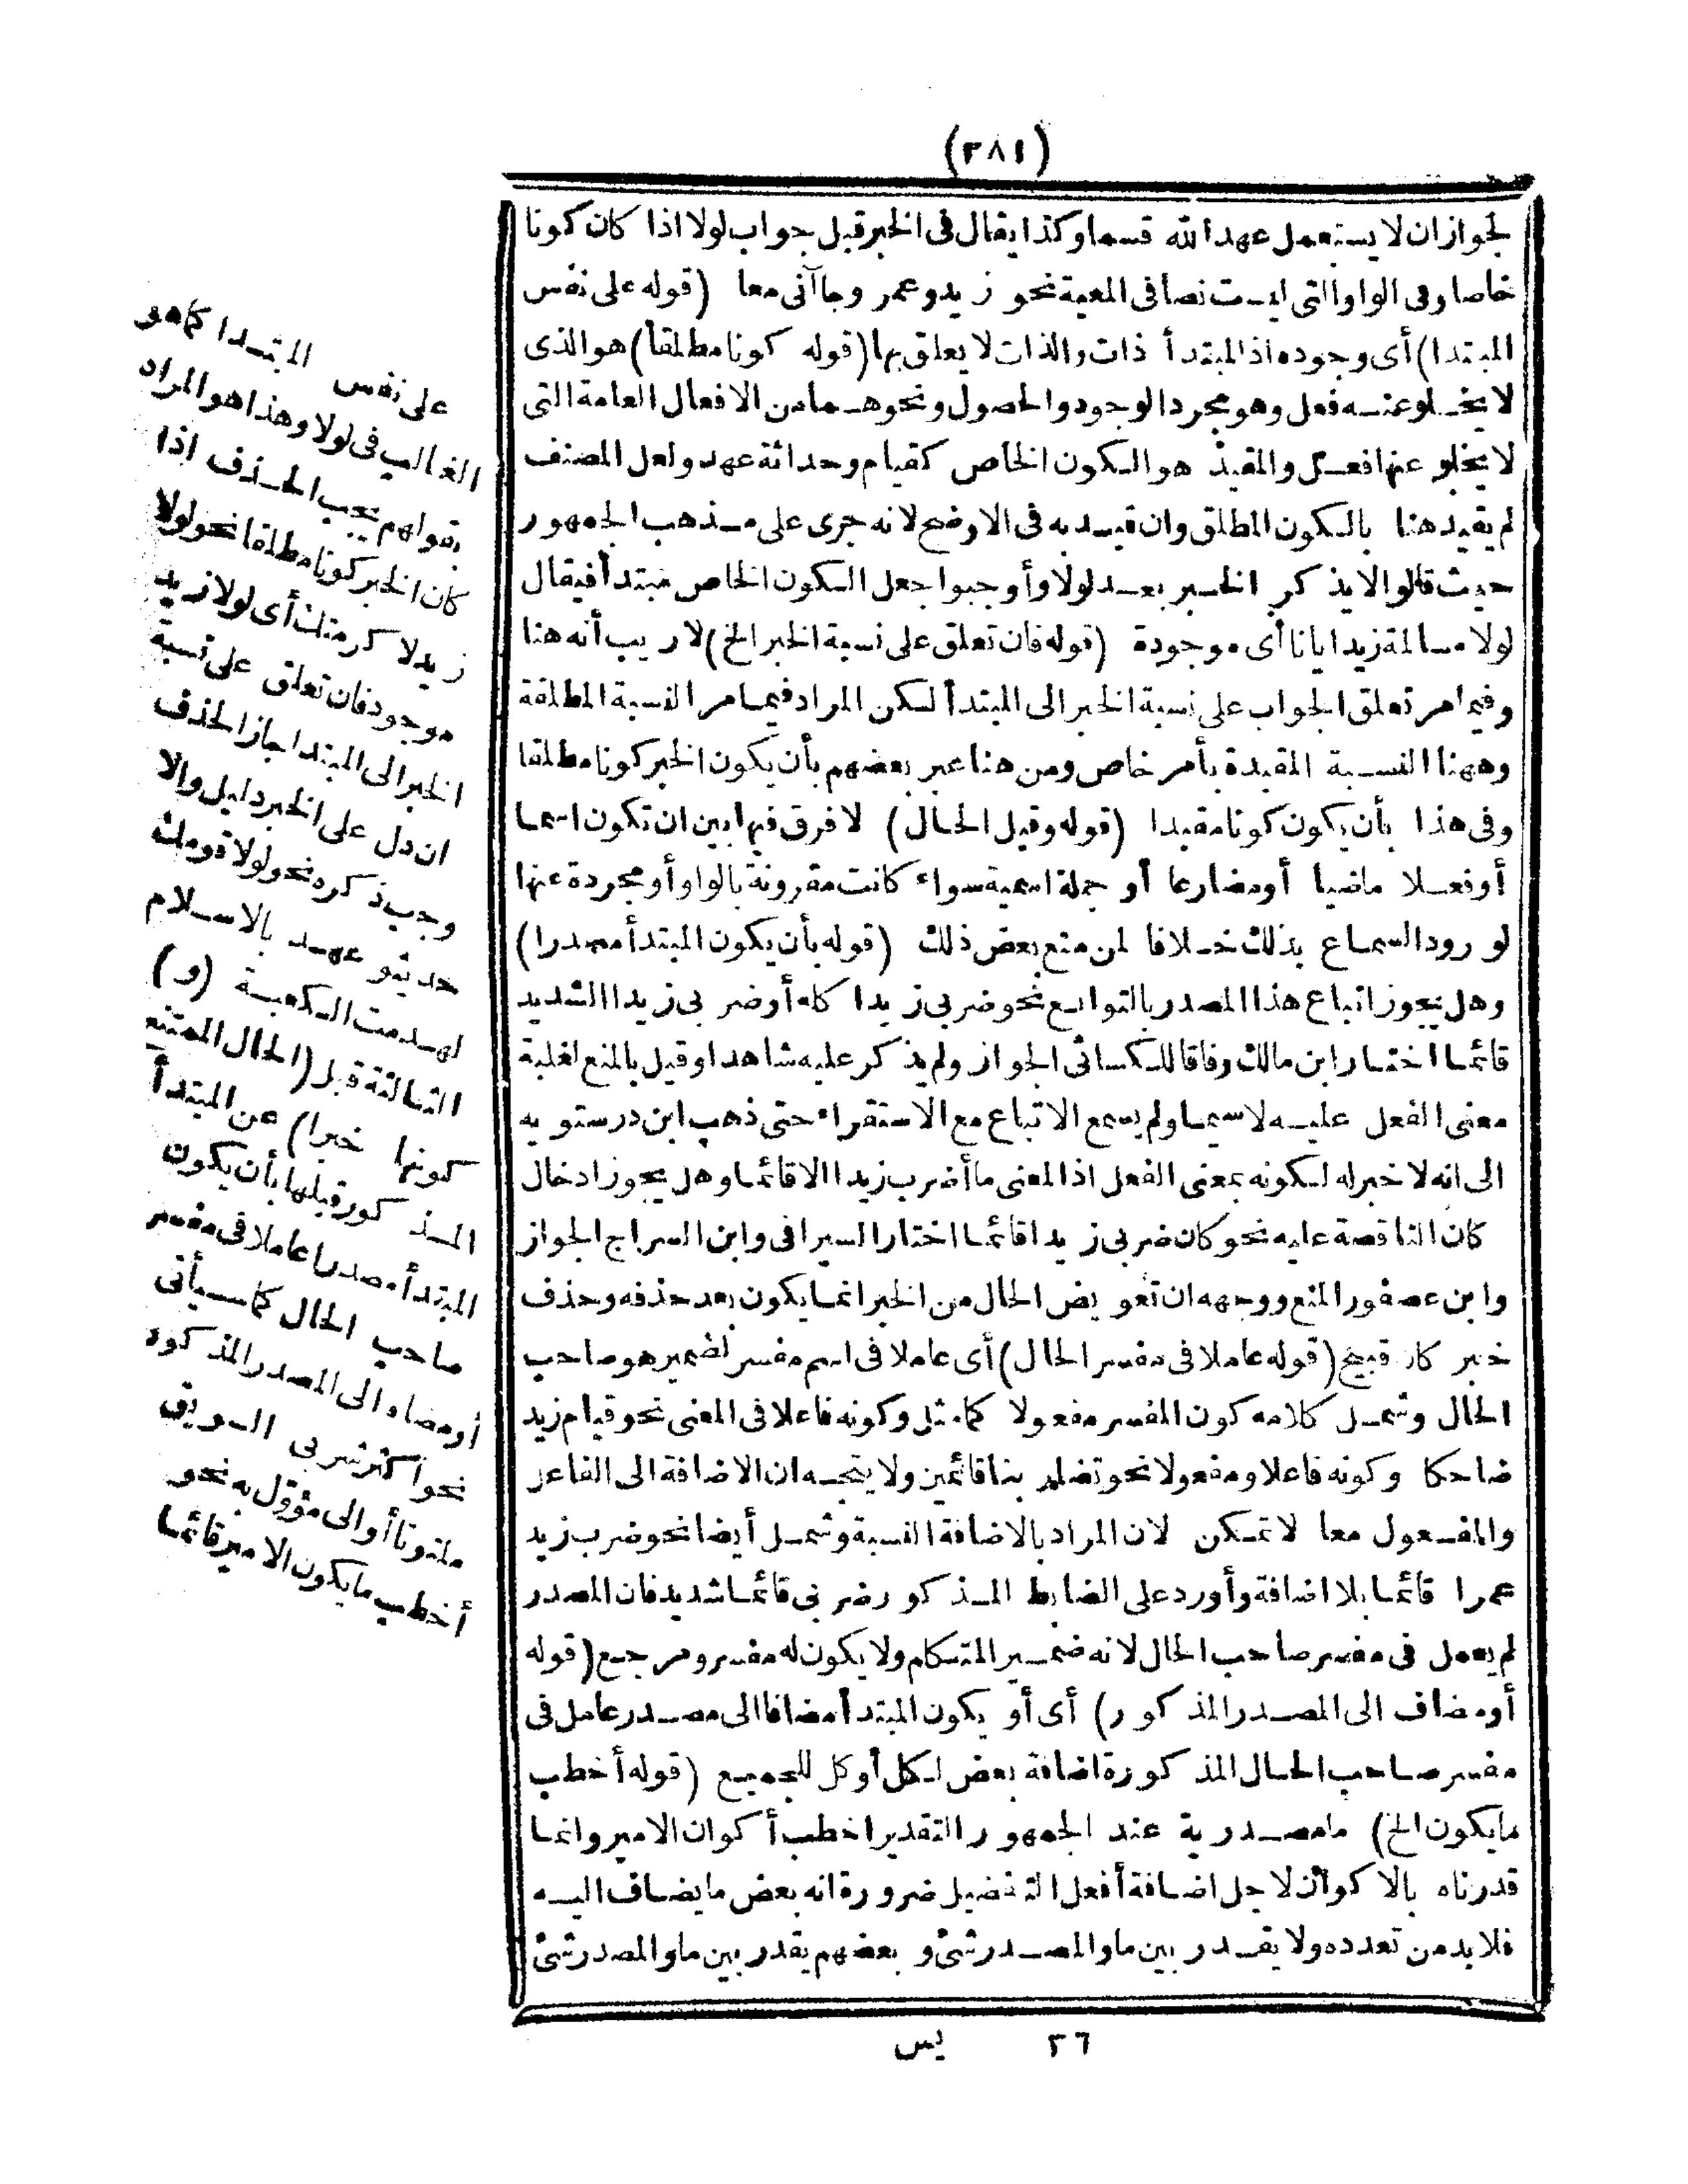 (٢٨١)
لجواز ان لا يستعمل عهد الله قسما وكذا يقال فى الخبر قبل جواب لولا اذا كان كونا
خاصا وفى الواو التى ليست نصا فى المعية نحو زيد وعمر وجا آنى معا (قوله على نفس
المبتدا) أى وجوده اذ المبتدأ ذات والذات لا يعلق بها (قوله كونا مطلقا) هو الذى
لا يخلو عنه فعل وهو مجرد الوجود والحصول ونحوهما من الافعال العامة التى
لا يخلو عنها فعل والمقيد هو الكون الخاص كقيام وحداثة عهد ولعل المصنف
لم يقيد هنا بالكون المطلق وان قيد به فى الاوضح لانه جرى على مذهب الجمهور
حيث قالوا لا يذكر الخبر بعد لولا وأوجبوا جعل الكون الخاص مبتدأ فيقال
لولا مسالمة زيد ايانا أى موجودة (قوله فان تعلق على نسبة الخبر الخ) لا ريب أنه هنا
وفيما مر تعلق الجواب على نسبة الخبر الى المبتدأ لكن المراد فيما مر النسبة المطلقة
وههنا النسبة المقيدة بأمر خاص ومن هنا عبر بعضهم بأن يكون الخبر كونا مطلقا
وفى هذا بأن يكون كونا مقيدا (قوله وقيل الحال) لا فرق فيها بين ان تكون اسما
أو فعلا ماضيا أو مضارعا أو جملة اسمية سواء كانت مقرونة بالواو أو مجردة عنها
لورود السماع بذلك خلافا لمن منع بعض ذلك (قوله بأن يكون المبتدأ مصدرا)
وهل يجوز اتباع هذا المصدر بالتوابع نحو ضربى زيدا كله أو ضربى زيدا الشديد
قائما اختار ابن مالك وفاقا للكسائى الجواز ولم يذكر عليه شاهدا وقيل بالمنع لغلبة
معنى الفعل عليه لا سيما ولم يسمع الاتباع مع الاستقراء حتى ذهب ابن درستويه
الى انه لا خبر له لكونه بمعنى الفعل اذ المعنى ما أضرب زيدا الا قائما وهل يجوز ادخال
كان الناقصة عليه نحو كان ضربى زيدا قائما اختار السيرافى وابن السراج الجواز
وابن عصفور المنع ووجهه ان تعويض الحال من الخبر انما يكون بعد حذفه وحذف
خبر كان قبيح (قوله عاملا فى مفسر الحال) أى عاملا فى اسم مفسر لضمير هو صاحب
الحال وشمل كلامه كون المفسر مفعولا كما مثل وكونه فاعلا فى المعنى نحو قيام زيد
ضاحكا وكونه فاعلا ومفعولا نحو تضاربنا قائمين ولا يتجه ان الاضافة الى الفاعل
والمفعول معا لا تمكن لان المراد بالاضافة النسبة وشمل أيضا نحو ضرب زيد
عمرا قائما بلا اضافة وأورد على الضابط المذكور ضربى قائما شديد فان المصدر
لم يعمل فى مفسر صاحب الحال لانه ضمير المتكلم ولا يكون له مفسر ومرجع (قوله
أو مضاف الى المصدر المذكور) أى أو يكون المبتدأ مضافا الى مصدر عامل فى
مفسر صاحب الحال المذكورة اضافة بعض لكل أو كل للجميع (قوله أخطب
ما يكون الخ) ما مصدرية عند الجمهور التقدير اخطب أكوان الامير وانما
قدرناه بالاكوان لاجل اضافة أفعل التفضيل ضرورة انه بعض ما يضاف اليه
فلا بد من تعدده ولا يقدر بين ما والمصدر شئ وبعضهم يقدر بين ما والمصدر شئ
على نفس المبتدا كما هو
الغالب فى لولا وهذا هو المراد
بقولهم يجب الحذف اذا
كان الخبر كونا مطلقا نحو لولا
زيد لاكرمتك أى لولا زيد
موجود فان تعلق على نسبة
الخبر الى المبتدا جاز الحذف
ان دل على الخبر دليل والا
وجب ذكره نحو لولا قومك
حديثو عهد بالاسلام
لهدمت الكعبة (و)
الثالثة قبل (الحال الممتنع
كونها خبرا) عن المبتدأ
المذكور قبلها بأن يكون
المبتدأ مصدرا عاملا فى مفسر
صاحب الحال كما سيأتى
أو مضاف الى المصدر المذكور
نحو أكثر شربى السويق
ملتوتا أو الى مؤول به نحو
أخطب ما يكون الامير قائما
٣٦ يس